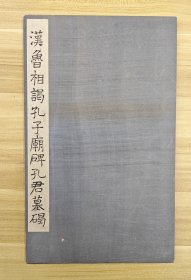 漢魯相謁孔子廟碑孔君墓碣